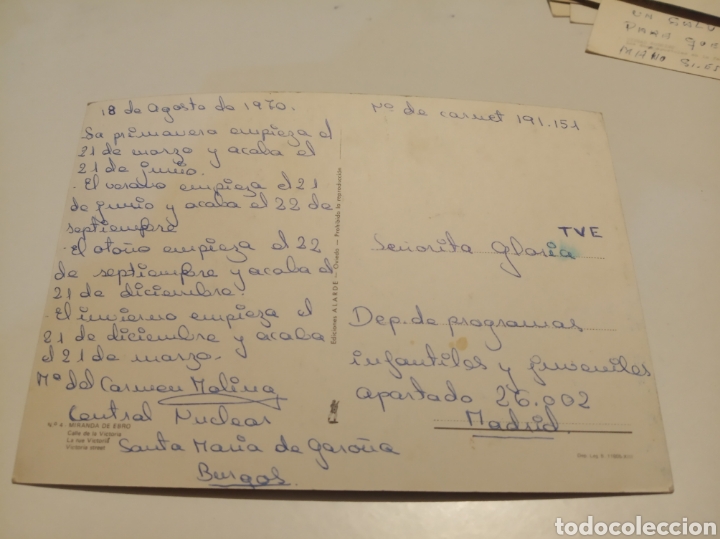 UN SALU
PARA
MANO
18 de agosto de 1970.
La primavera empieza el
21 de marzo y acaba el
21 de junio.
· El verano empieza el 21
de junio y acaba el 22 de
septiembre
· El otoño empieza el 22
de septiembre y acaba el
21 de diciembre.
· El invierno empieza el
21 de diciembre y acaba
el 21 de marzo.
Mª del Carmen Molina
Central Nuclear
Santa Maria de Garoña
Burgos.
N.º 4 - MIRANDA DE EBRO
Calle de la Victoria
La rue Victoria
Victoria street
Ediciones ALARDE - Oviedo - Prohibida la reproducción
Nº de carnet 191.151
TVE
Señorita Gloria
Dep. de programas
infantiles y juveniles
apartado 26.002
Madrid.
todocoleccion